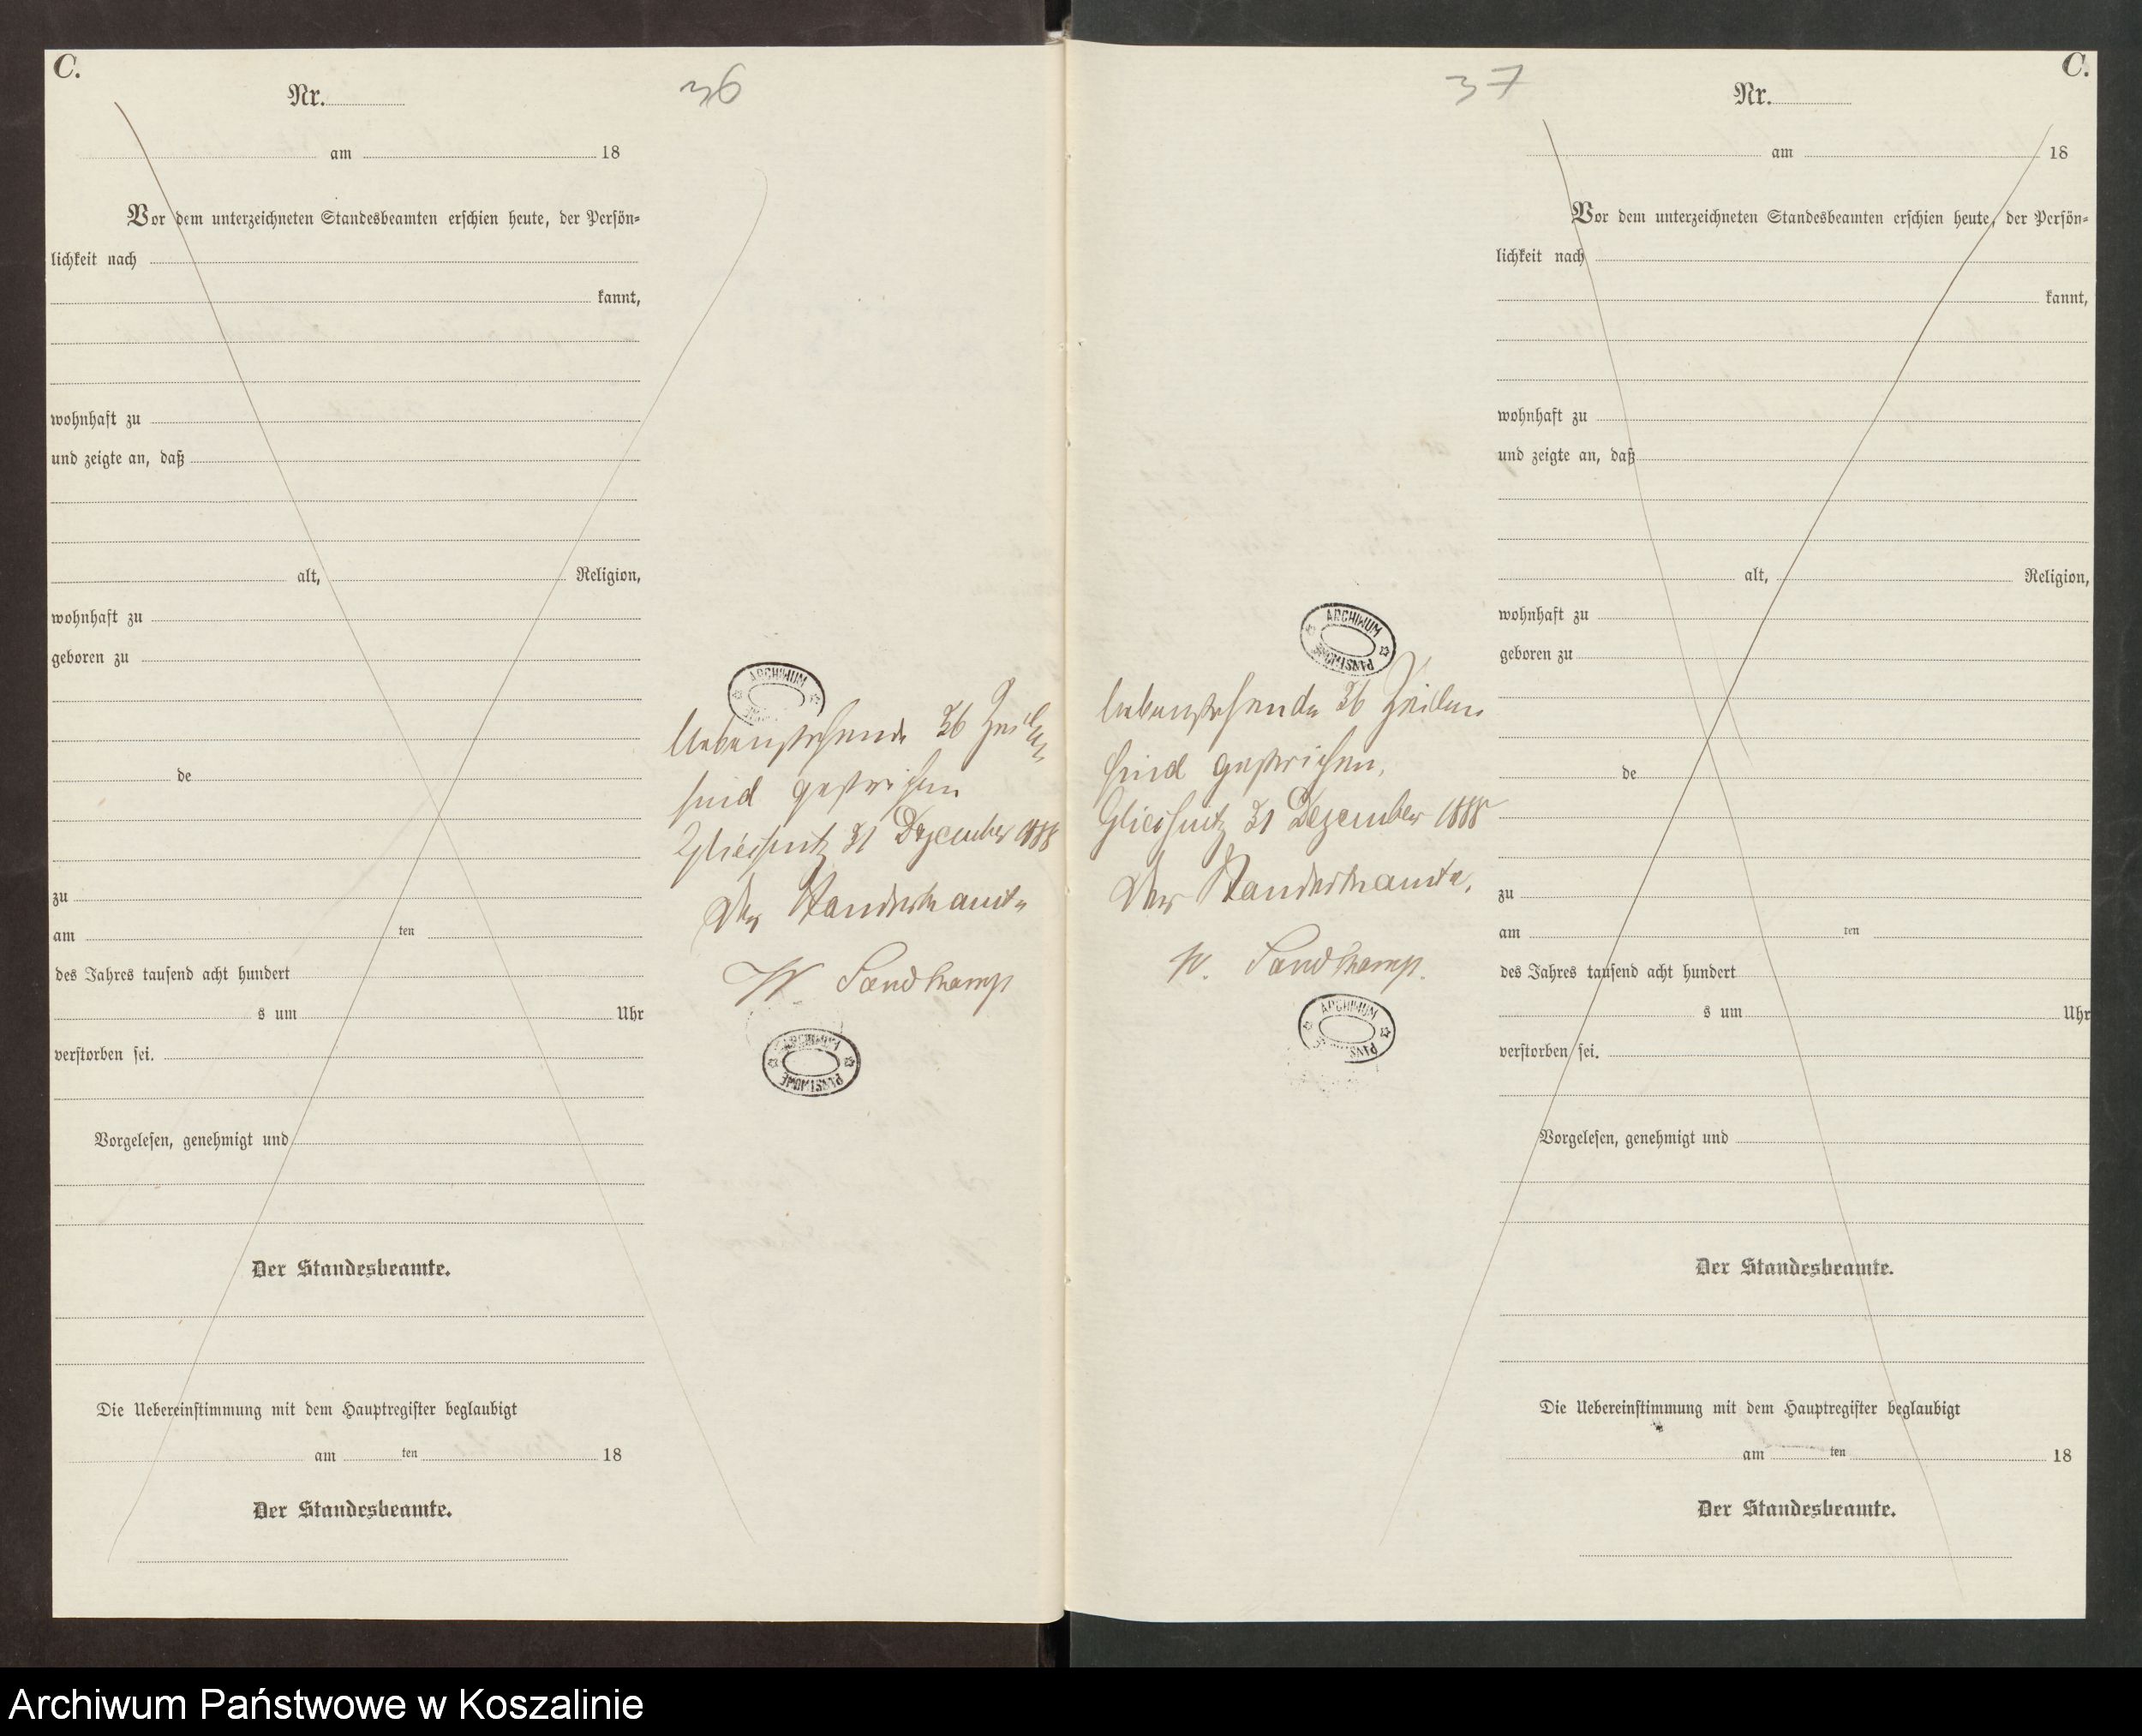 C.
36
Nr.
am 18
Vor dem unterzeichneten Standesbeamten erschien heute, der Persön-
lichkeit nach
kannt,
wohnhaft zu
und zeigte an, daß
alt, Religion,
wohnhaft zu
geboren zu
de
zu
am ten
des Jahres tausend acht hundert
s um Uhr
verstorben sei.
Vorgelesen, genehmigt und
Der Standesbeamte.
Die Uebereinstimmung mit dem Hauptregister beglaubigt
am ten 18
Der Standesbeamte.
ARCHIWUM
Nebenstehende 36 Zeilen
sind gestrichen
31 Dezember 1888
Der Standesbeamte
W. Sandkamp
ARCHIWUM PAŃSTWOWE
37
C.
Nr.
am 18
ARCHIWUM PAŃSTWOWE
Nebenstehende 36 Zeilen
sind gestrichen.
31 Dezember 1888
Der Standesbeamte.
W. Sandkamp.
ARCHIWUM PAŃSTWOWE
Vor dem unterzeichneten Standesbeamten erschien heute, der Persön-
lichkeit nach
kannt,
wohnhaft zu
und zeigte an, daß
alt, Religion,
wohnhaft zu
geboren zu
de
zu
am ten
des Jahres tausend acht hundert
s um Uhr
verstorben sei.
Vorgelesen, genehmigt und
Der Standesbeamte.
Die Uebereinstimmung mit dem Hauptregister beglaubigt
am ten 18
Der Standesbeamte.
Archiwum Państwowe w Koszalinie